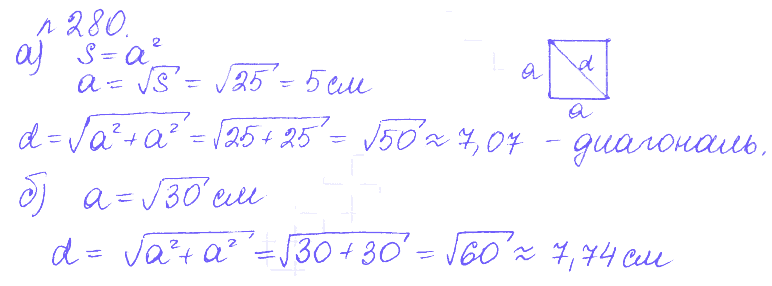 n 280.
а) S = a²
a = √S = √25 = 5 см
d = √a² + a² = √25 + 25 = √50 ≈ 7,07 – диагональ.
a
d
a
б) a = √30 см
d = √a² + a² = √30 + 30 = √60 ≈ 7,74 см